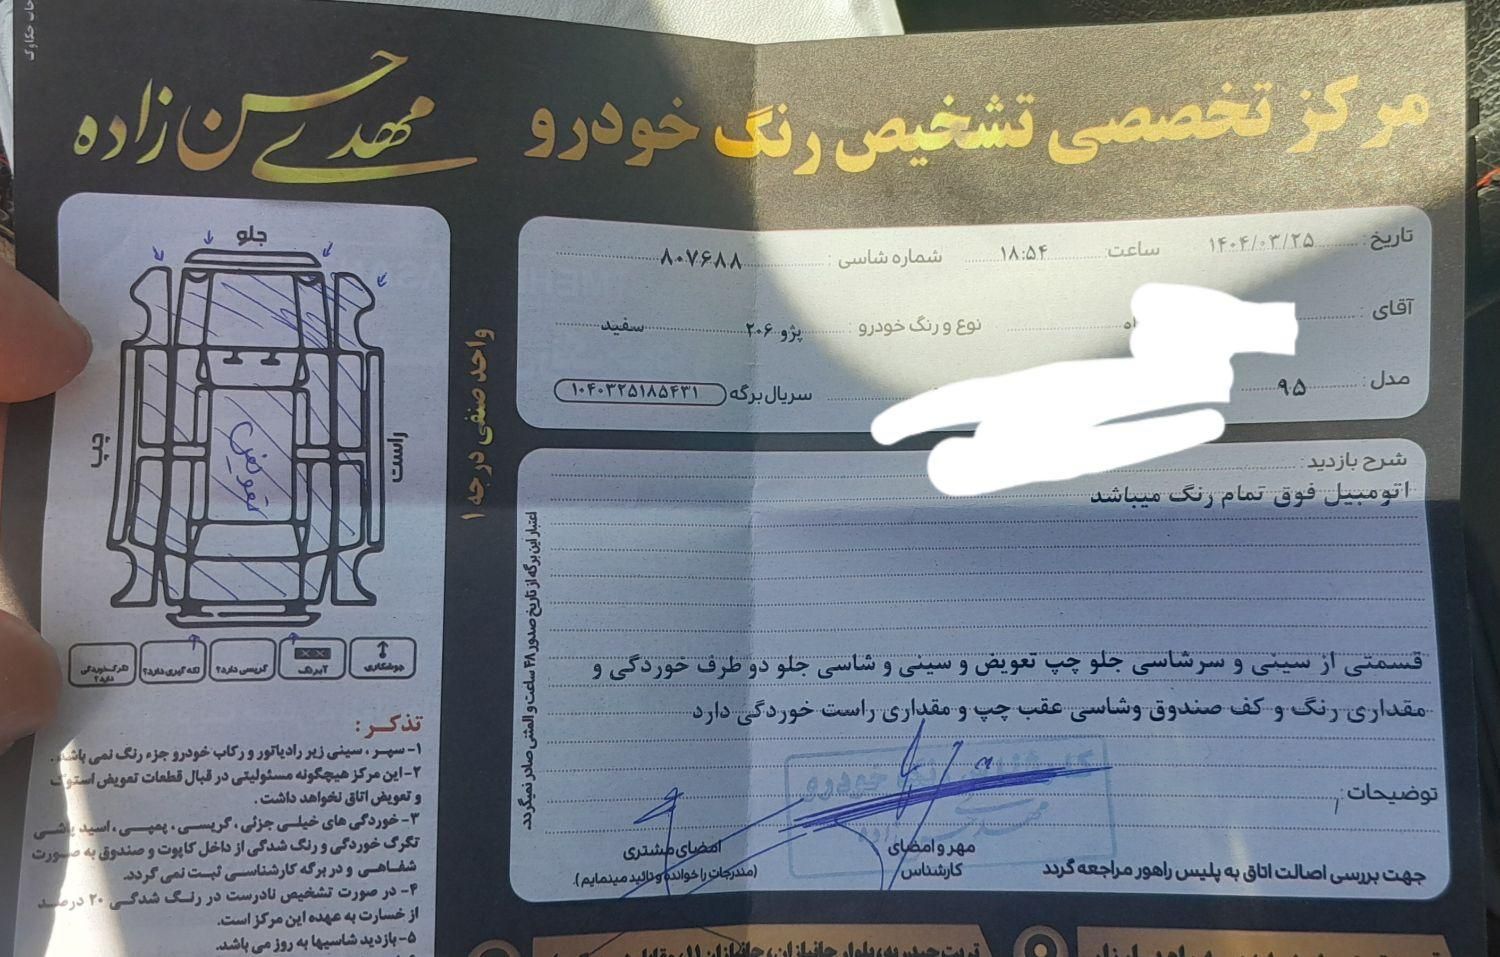 مرکز تخصصی تشخیص رنگ خودرو
مهدی حسن زاده
تاریخ: ۱۴۰۴/۰۳/۲۵ ساعت: ۱۸:۵۴ شماره شاسی: ۸۰۷۶۸۸
آقای:
نوع و رنگ خودرو: پژو ۲۰۶ سفید
مدل: ۹۵
سریال برگه ۱۰۴۰۳۲۵۱۸۵۴۳۱
شرح بازدید:
اتومبیل فوق تمام رنگ میباشد
قسمتی از سینی و سرشاسی جلو چپ تعویض و سینی و شاسی جلو دو طرف خوردگی و
مقداری رنگ و کف صندوق وشاسی عقب چپ و مقداری راست خوردگی دارد
توضیحات:
مهر و امضای
کارشناس
امضای مشتری
(مندرجات را خوانده و تائید مینمایم).
جهت بررسی اصالت اتاق به پلیس راهور مراجعه گردد
کارشناسی رنگ خودرو
اعتبار این برگه از تاریخ صدور ۴۸ ساعت و المثنی صادر نمیگردد.
واحد صنفی درجه ۱
جلو
چپ
راست
تعویض
جوشکاری
آبرنگ
گریسی دارد؟
لکه گیری دارد؟
تگرگ خوردگی دارد؟
تذکر:
۱- سپر، سینی زیر رادیاتور و رکاب خودرو جزء رنگ نمی باشد.
۲- این مرکز هیچگونه مسئولیتی در قبال قطعات تعویض استوک
و تعویض اتاق نخواهد داشت.
۳- خوردگی های خیلی جزئی، گریسی، پمپی، اسید پاشی
تگرگ خوردگی و رنگ شدگی از داخل کاپوت و صندوق به صورت
شفاهی و در برگه کارشناسی ثبت نمی گردد.
۴- در صورت تشخیص نادرست در رنگ شدگی ۲۰ درصد
از خسارت به عهده این مرکز است.
۵- بازدید شاسیها به روز می باشد.